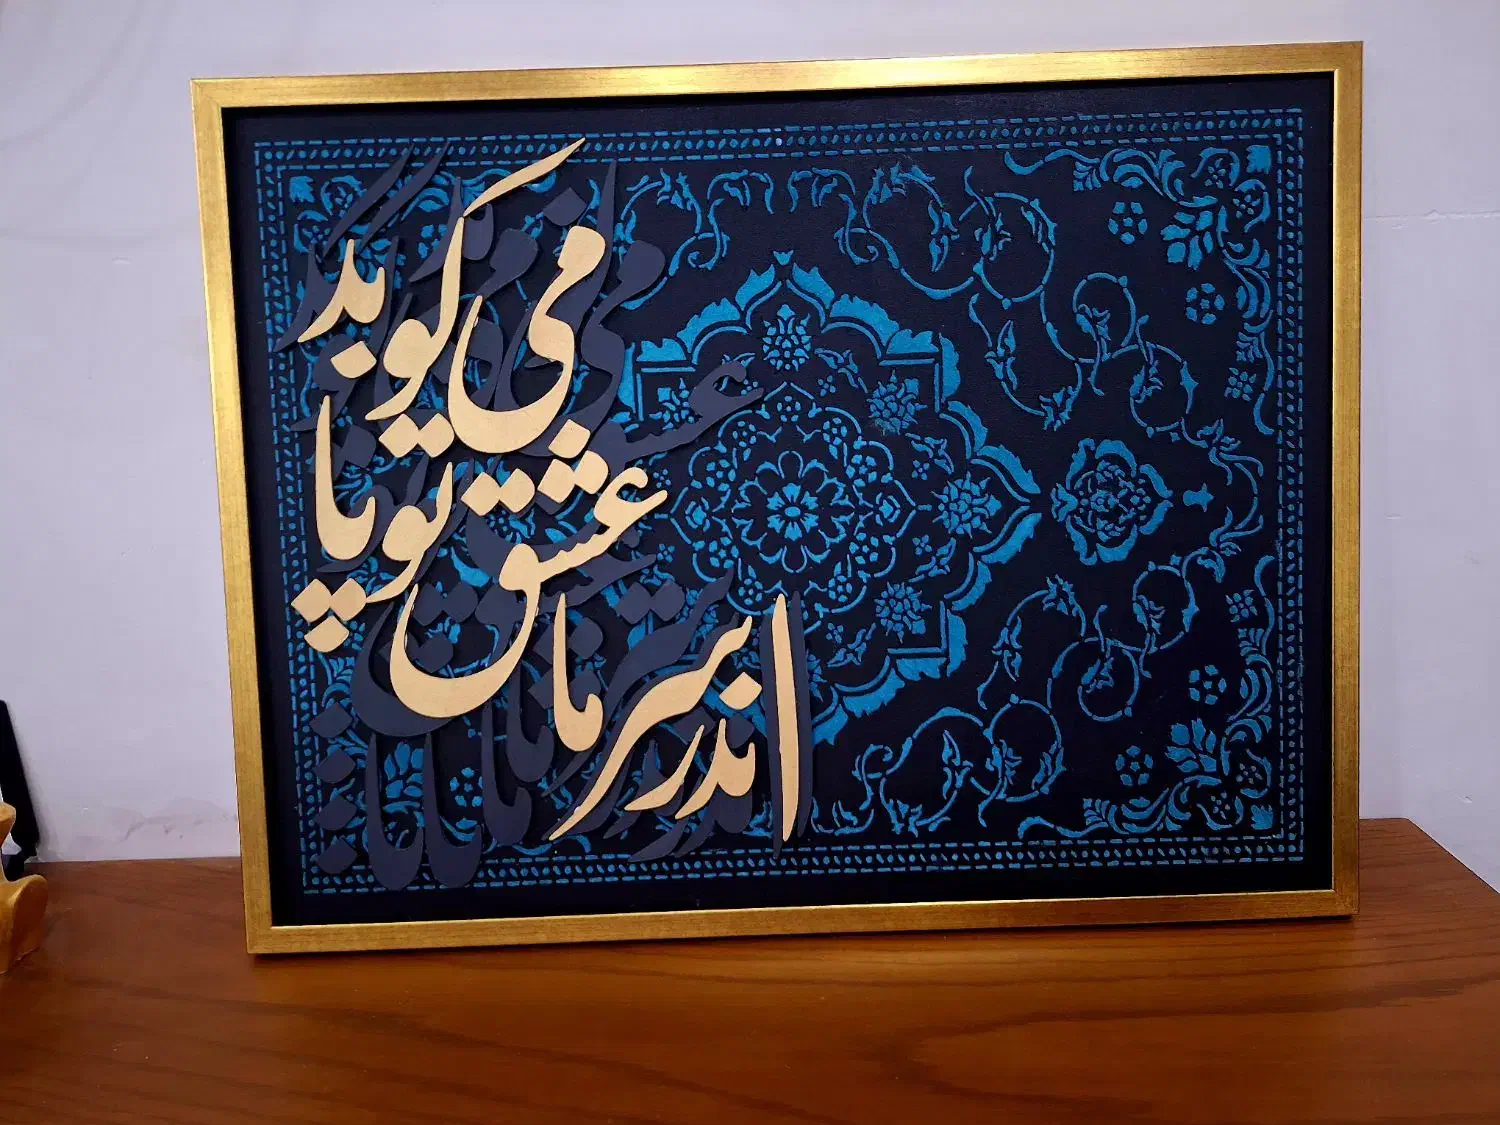 اندر سر ما
عشق تو پا
می کوبد